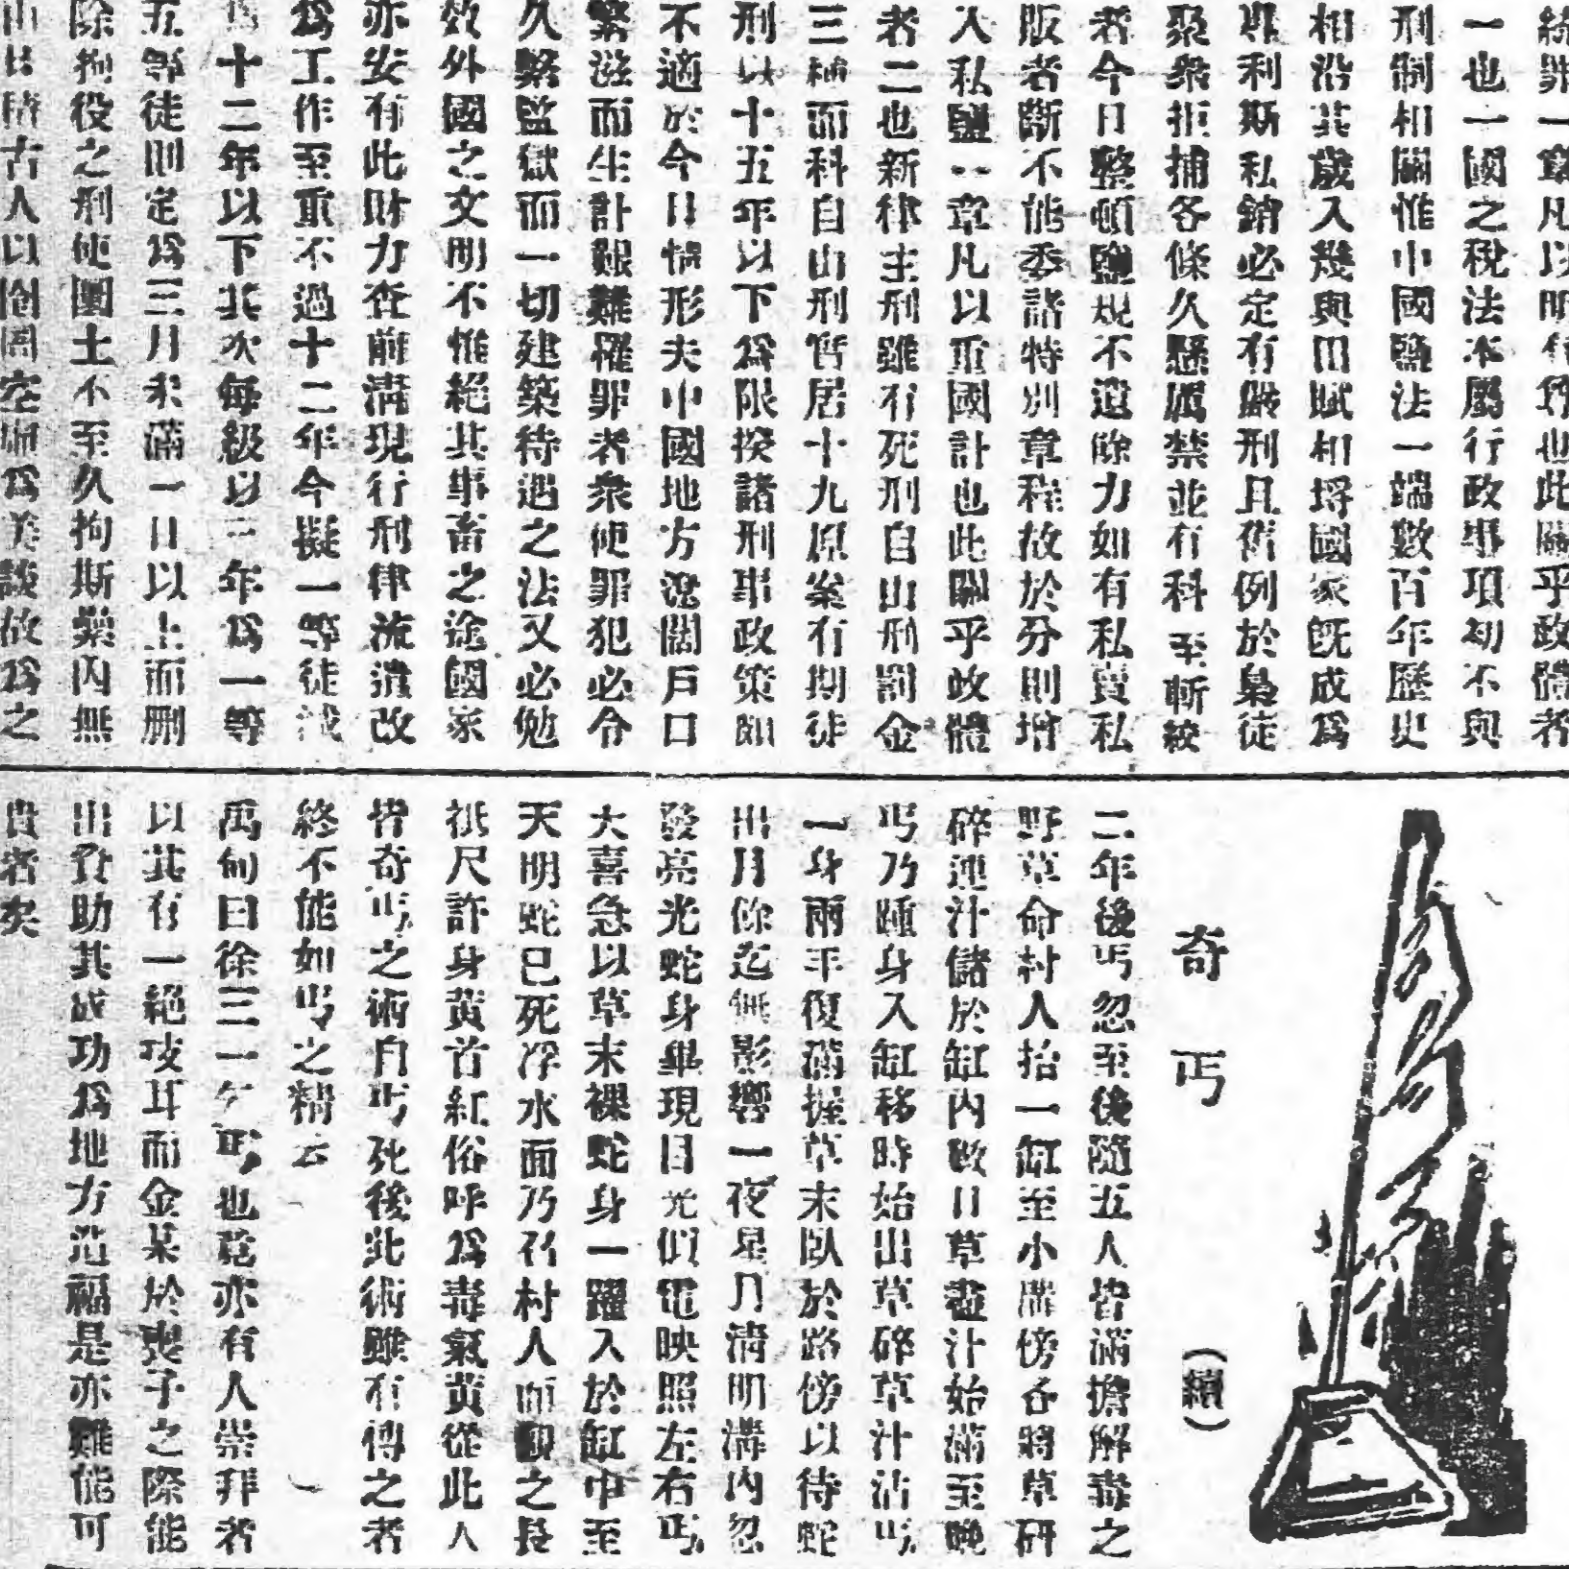 統罪一章凡以明有所也此關乎政體者
一也一國之稅法本屬行政事項初不與
刑制相關惟中國鹽法一端數百年歷史
相沿其歲入幾與田賦相埒國家既成為
專利斯私銷必定有嚴刑且舊例於梟徒
聚衆拒捕各條久懸厲禁並有科至斬絞
者今日整頓鹽規不遺餘力如有私賣私
販者斷不能委諸特別章程故於分則增
入私鹽一章凡以重國計也此關乎政體
者二也新律主刑雖有死刑自由刑罰金
三種而科自由刑實居十九原案有期徒
刑以十五年以下為限揆諸刑事政策頗
不適於今日情形夫中國地方遼闊戶口
繁滋而生計艱難罹罪者衆使罪犯必令
久繫監獄而一切建築待遇之法又必勉
效外國之文明不惟絕其事畜之途國家
亦安有此財力查前清現行刑律流遣改
為工作至重不過十二年今擬一等徒減
為十二年以下其次每級以三年為一等
五等徒則定為三月未滿一日以上而刪
除拘役之刑使圜土不至久拘斯縈內無
古人以囹圄空虛為美談故為之
奇丐
(續)
二年後丐忽至後隨五人皆滿擔解毒之
野草命村人抬一缸至小溝傍各將草研
碎連汁儲於缸內數日草盡汁始滿至晚
丐乃踵身入缸移時始出草碎草汁沾丐
一身兩手復滿握草末臥於路傍以待蛇
出月餘迄無影響一夜星月清明溝內忽
發亮光蛇身畢現目光似電映照左右丐
大喜急以草末裸蛇身一躍入於缸中至
天明蛇已死浮水面乃召村人而觀之長
祇尺許身黃首紅俗呼為毒氣黃從此人
皆奇丐之術自丐死後此術雖有傳之者
終不能如丐之精云
禹甸曰徐三一乞丐也竟亦有人崇拜者
以其有一絕技耳而金某於喪子之際能
出貲助其成功為地方造福是亦難能可
貴者矣